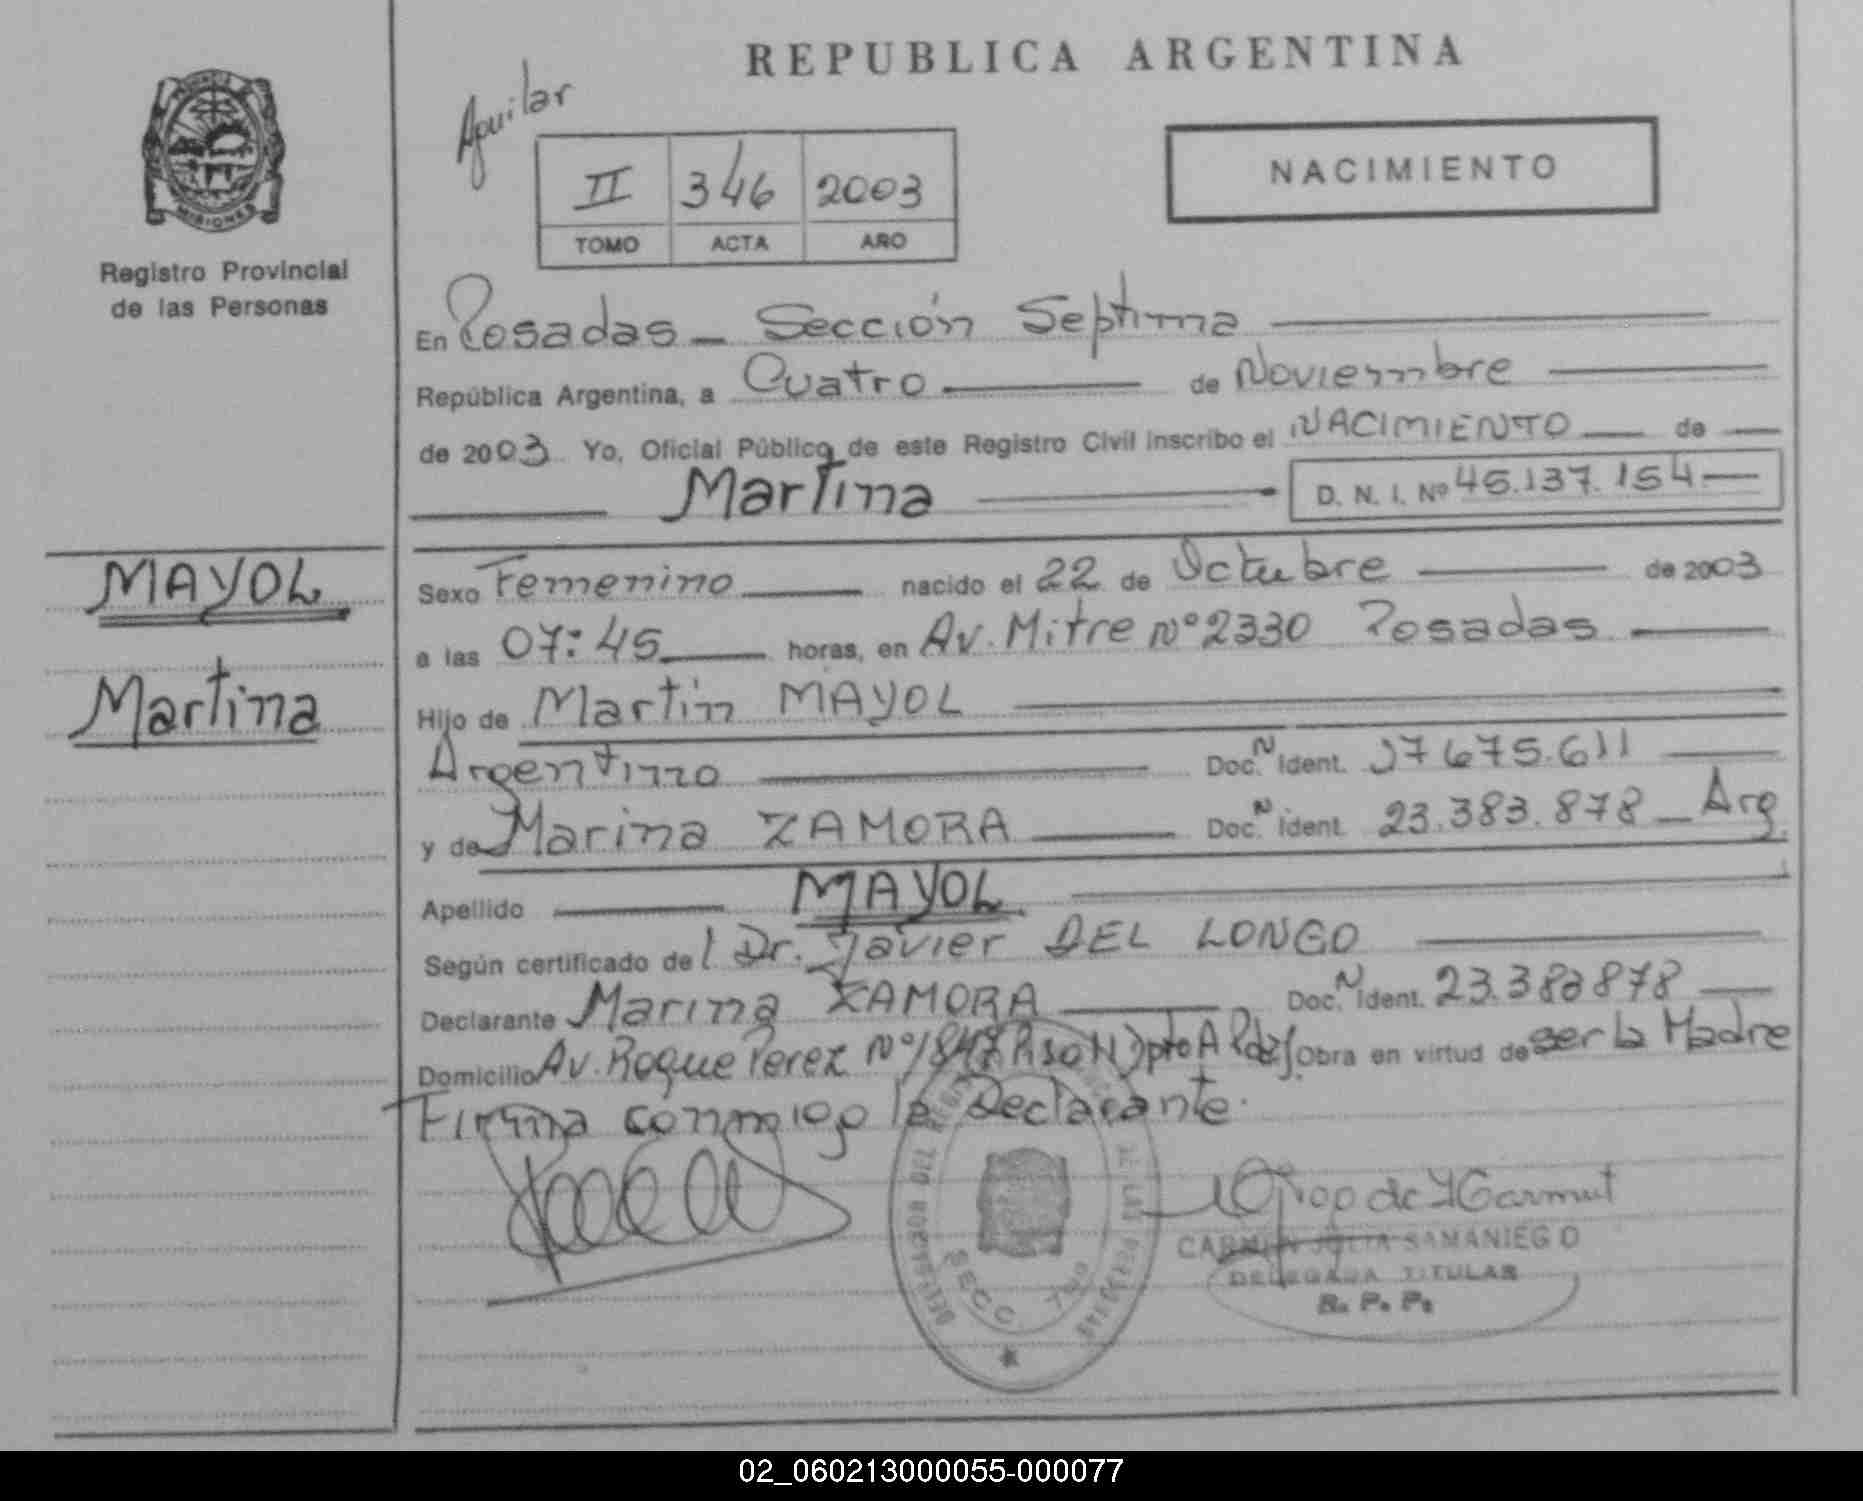 REPUBLICA ARGENTINA
Aguilar
MISIONES
Registro Provincial
de las Personas
II 346 2003
TOMO ACTA AÑO
NACIMIENTO
En Posadas - Sección Septima
República Argentina, a Cuatro de Noviembre
de 2003 Yo, Oficial Público de este Registro Civil inscribo el NACIMIENTO de
Martina D. N. I. Nº 45.137.154
MAYOL
Martina
Sexo Femenino nacido el 22 de Octubre de 2003
a las 07:45 horas, en Av. Mitre Nº 2330 Posadas
Hijo de Martín MAYOL
Argentino Doc. N Ident. 17675.611
y de Marina ZAMORA Doc. N Ident. 23.383.878 - Arg.
Apellido MAYOL
Según certificado del Dr. Javier DEL LONGO
Declarante Marina ZAMORA Doc. N Ident. 23.383878
Domicilio Av. Roque Perez Nº 1847 Piso Dpto A Pdas. Obra en virtud de ser la Madre
Firma conmigo la Declarante.
SECC. 7ma
CARMEN JULIA SAMANIEGO
DELEGADA TITULAR
R. P. P.
02_060213000055-000077